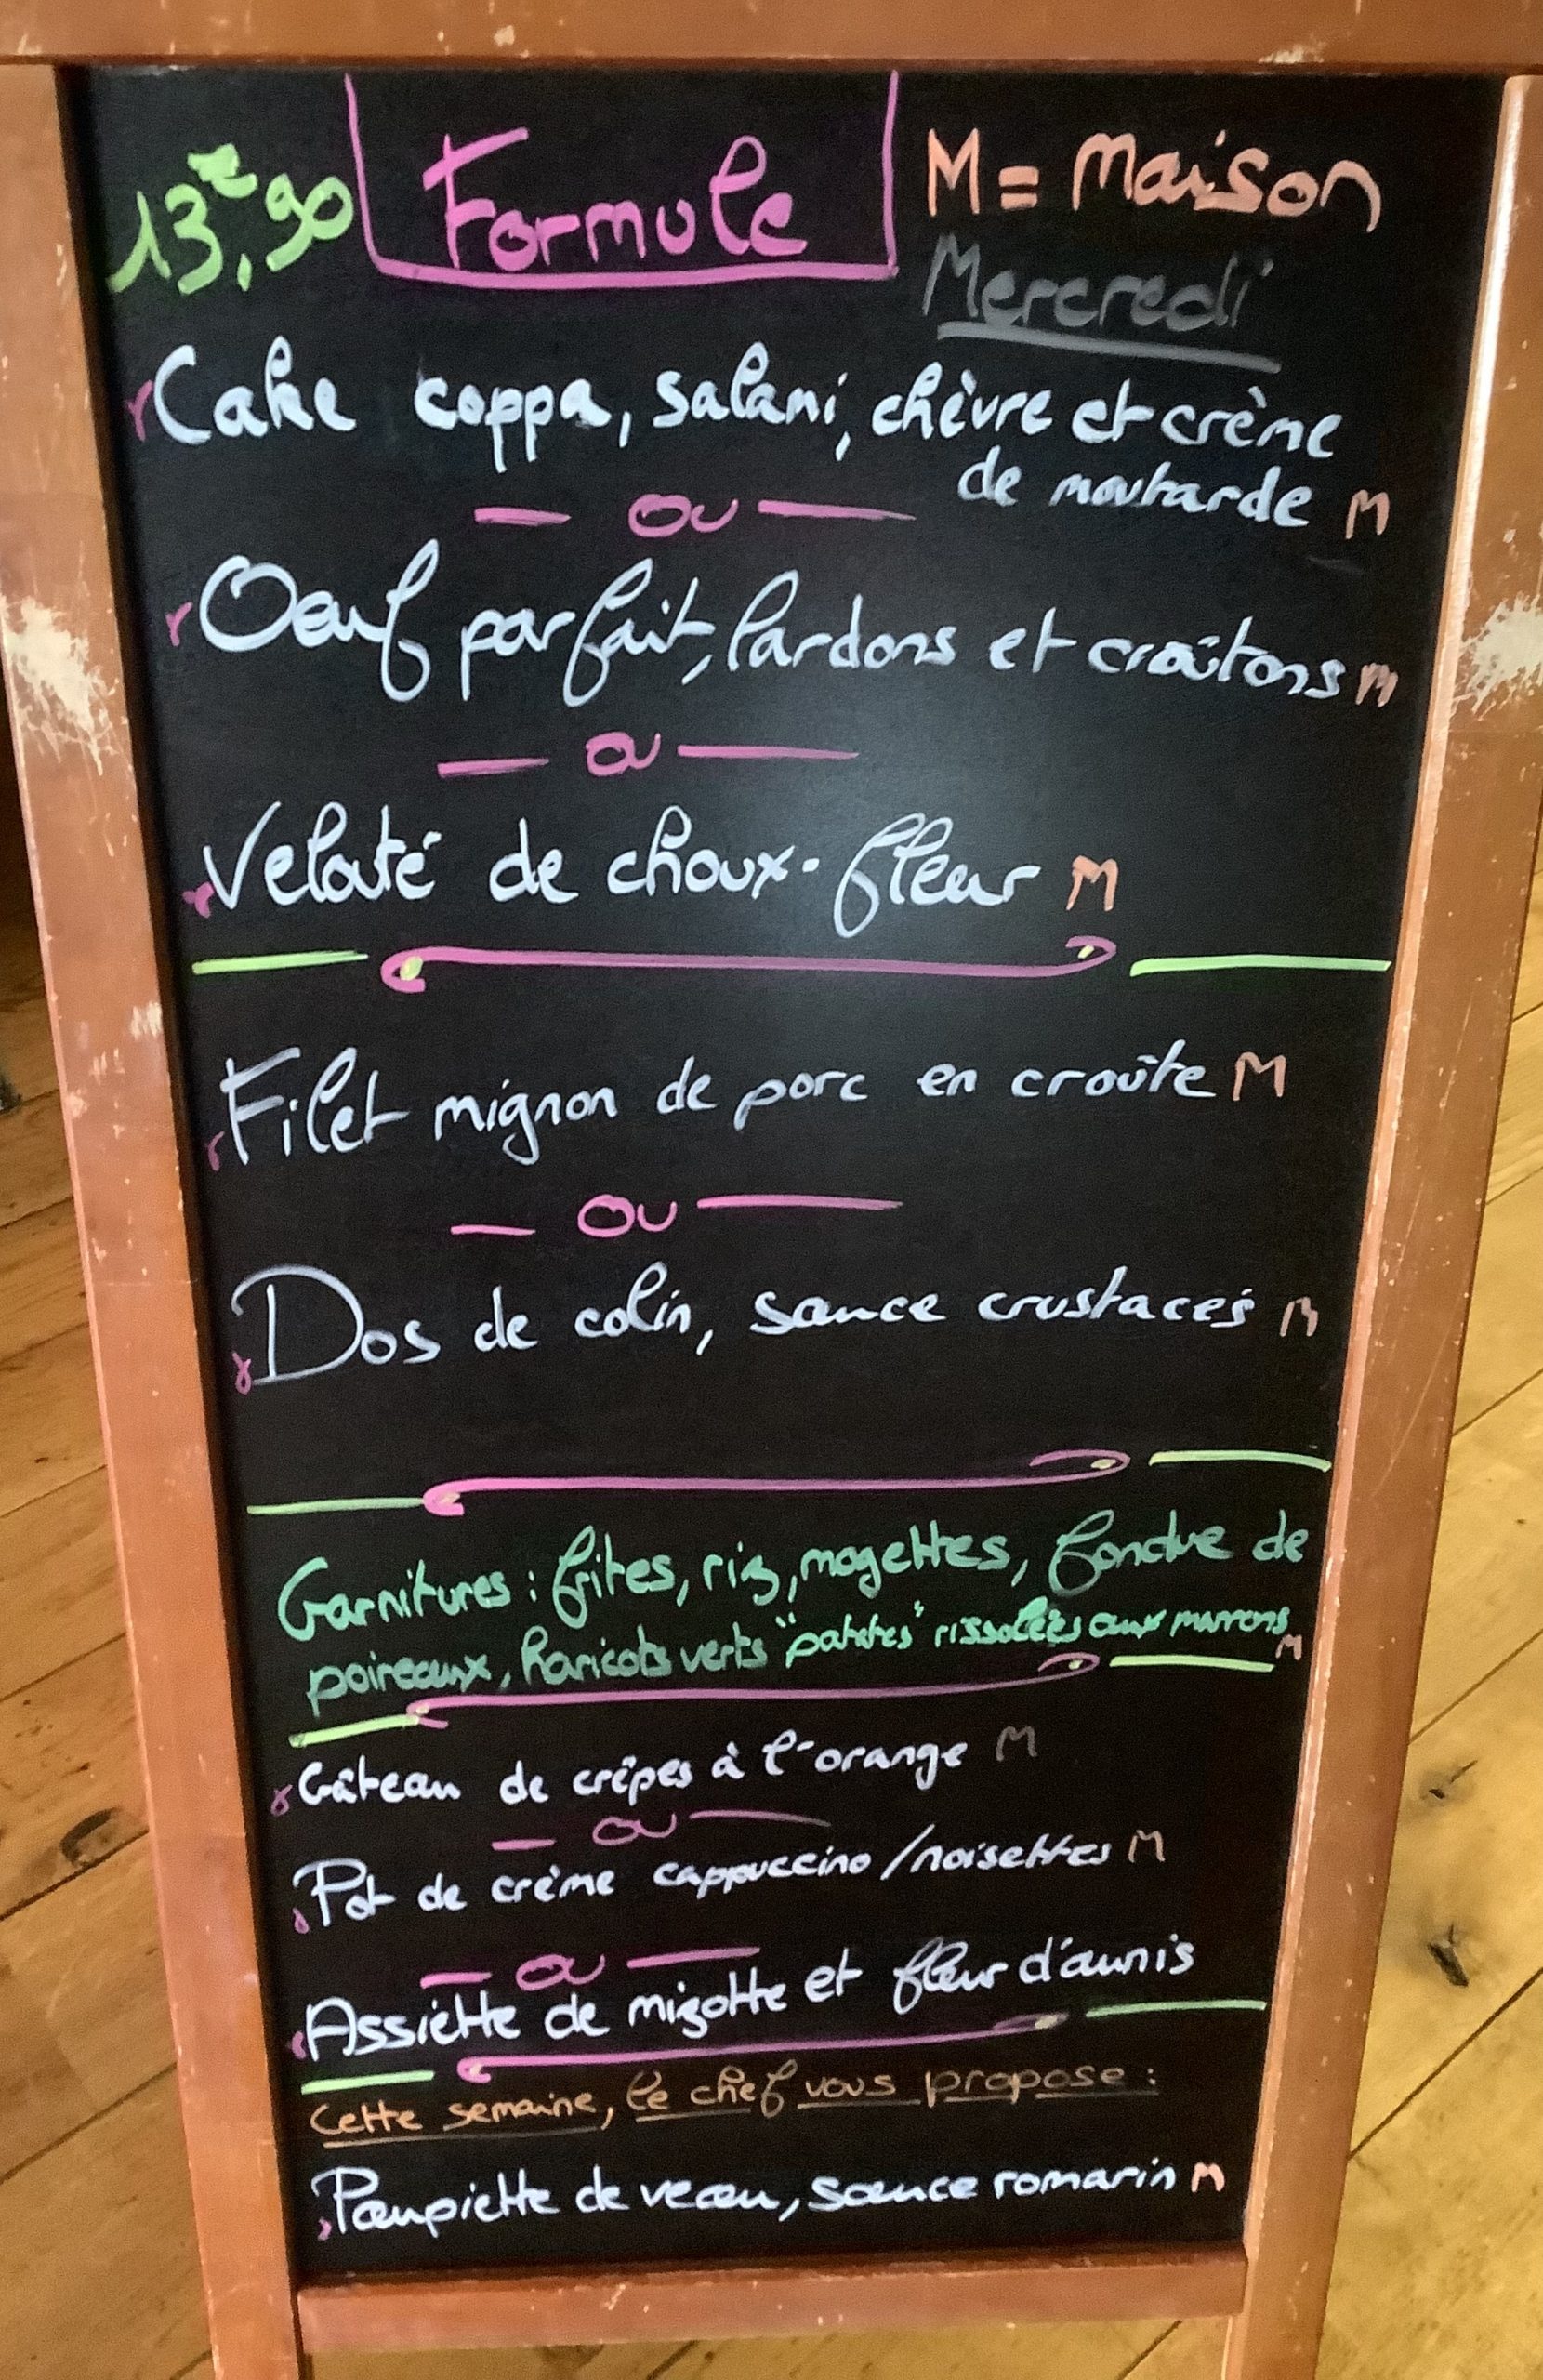 13,€90 Formule M = Maison
Mercredi
Cake coppa, salami, chèvre et crème
de moutarde M
— ou —
Oeuf parfait, lardons et croûtons M
— ou —
Velouté de choux-fleur M
Filet mignon de porc en croûte M
— ou —
Dos de colin, sauce crustacés M
Garnitures : frites, riz, mogettes, fondue de
poireaux, haricots verts "patates" rissolées aux marrons
M
Gâteau de crêpes à l'orange M
— ou —
Pot de crème cappuccino/noisettes M
— ou —
Assiette de mizotte et fleur d'aunis
Cette semaine, le chef vous propose :
Paupiette de veau, sauce romarin M